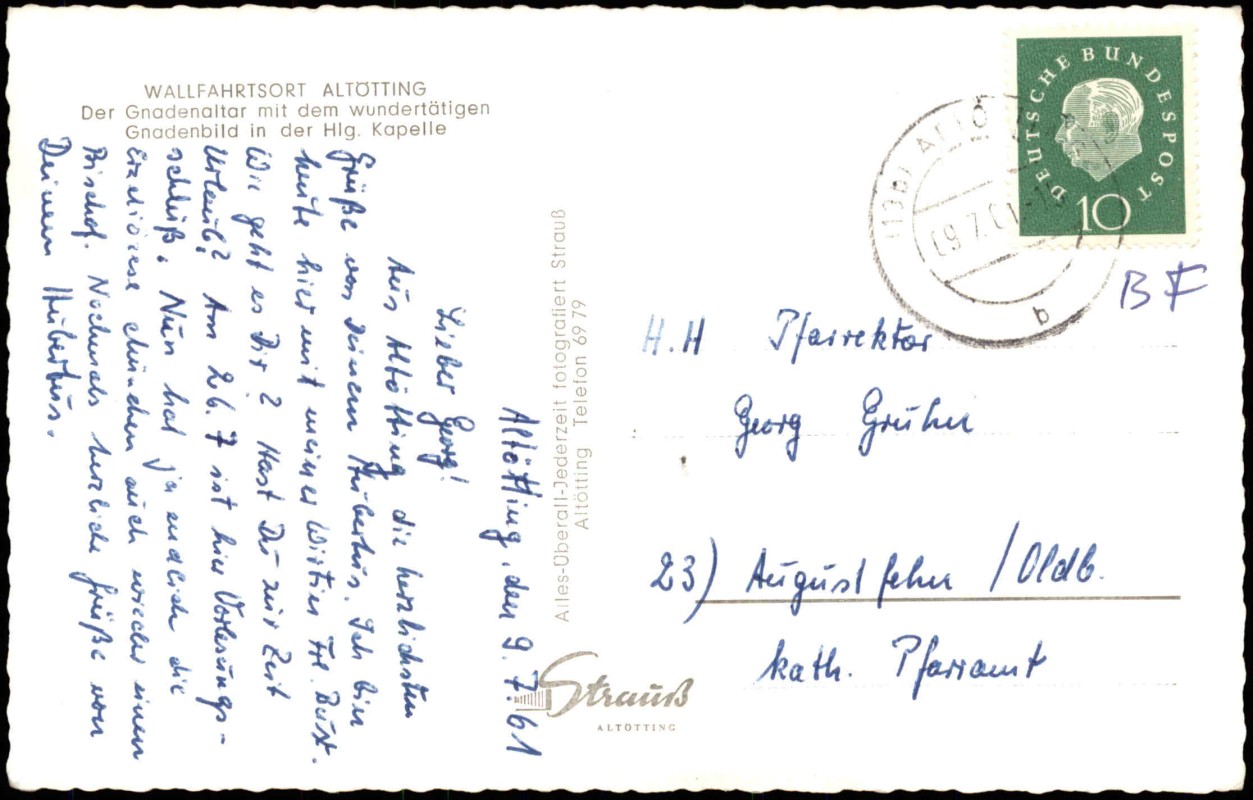 WALLFAHRTSORT ALTÖTTING
Der Gnadenaltar mit dem wundertätigen
Gnadenbild in der Hlg. Kapelle
Altötting, den 9.7.61
Lieber Georg!
Aus Altötting die herzlichsten
Grüße von Deinem Hubertus. Ich bin
heute hier mit meiner Wirtin Frl. Bust.
Wie geht es Dir? Hast Du zur Zeit
Urlaub? Am 26.7 ist hier Vorlesungs-
schluß. Nun hat ja endlich die
Erzdiözese München auch wieder einen
Bischof. Nochmals herzliche Grüße von
Deinem Hubertus.
Alles-Überall-Jederzeit fotografiert Strauß
Altötting Telefon 69 79
Strauß
ALTÖTTING
DEUTSCHE BUNDESPOST
10
(13b) ALTÖ
b
BF
H.H Pfarrektor
Georg Gruhn
23) Augustfehn /Oldb.
kath. Pfarramt